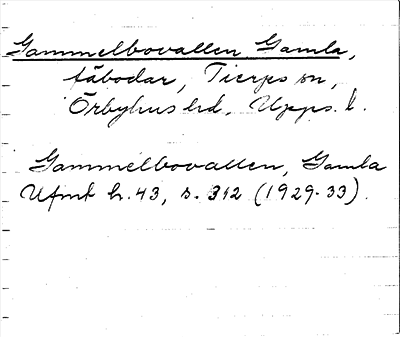 Gammelbovallen Gamla,
fäbodar, Tierps sn,
Örbyhus hd. Upps. l.
Gammelbovallen, Gamla
Ufmt h. 43, s. 312 (1929-33).